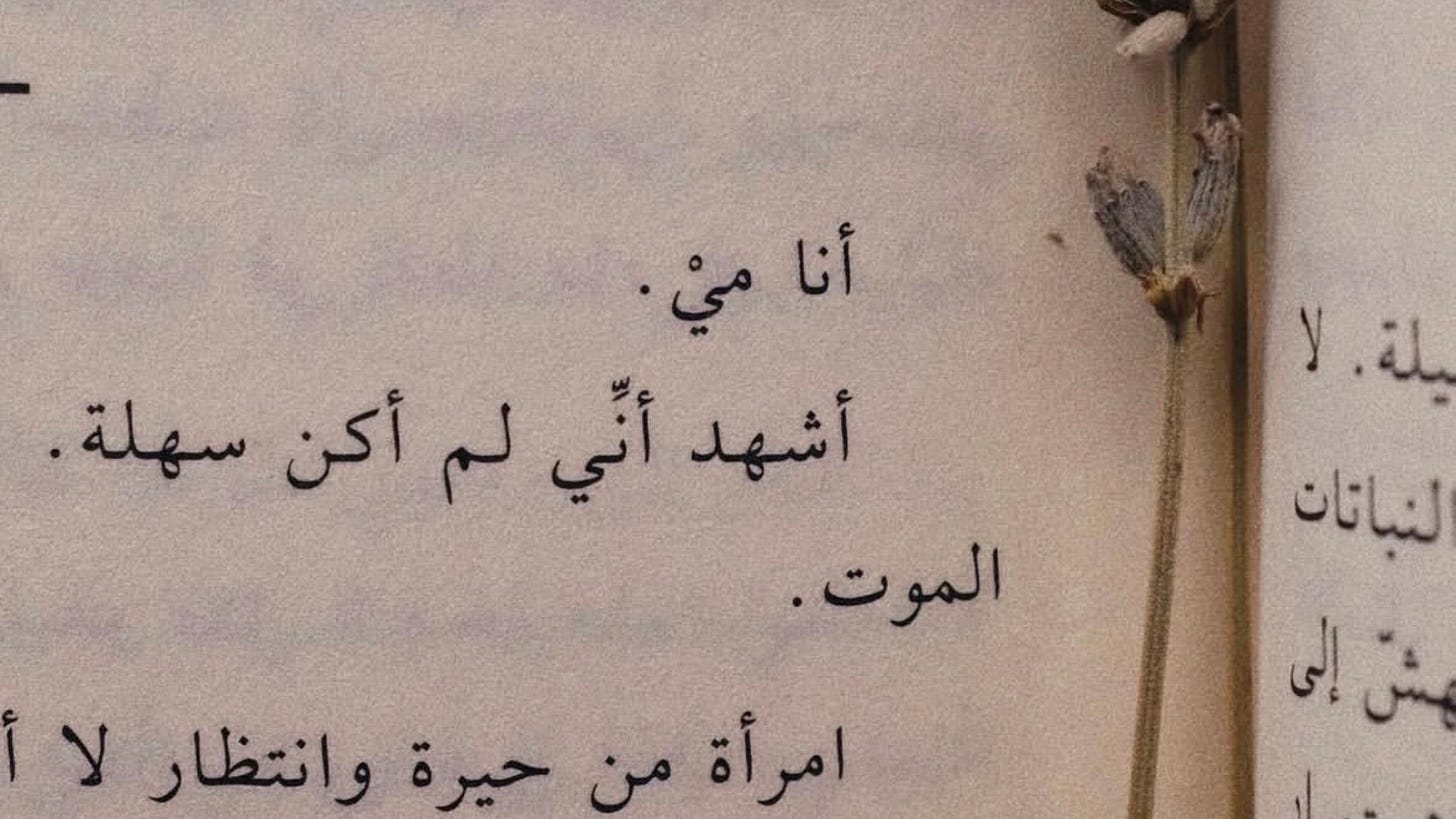 أنا ميْ.
أشهد أنِّي لم أكن سهلة.
الموت.
امرأة من حيرة وانتظار لا
لا
النباتات
إلى